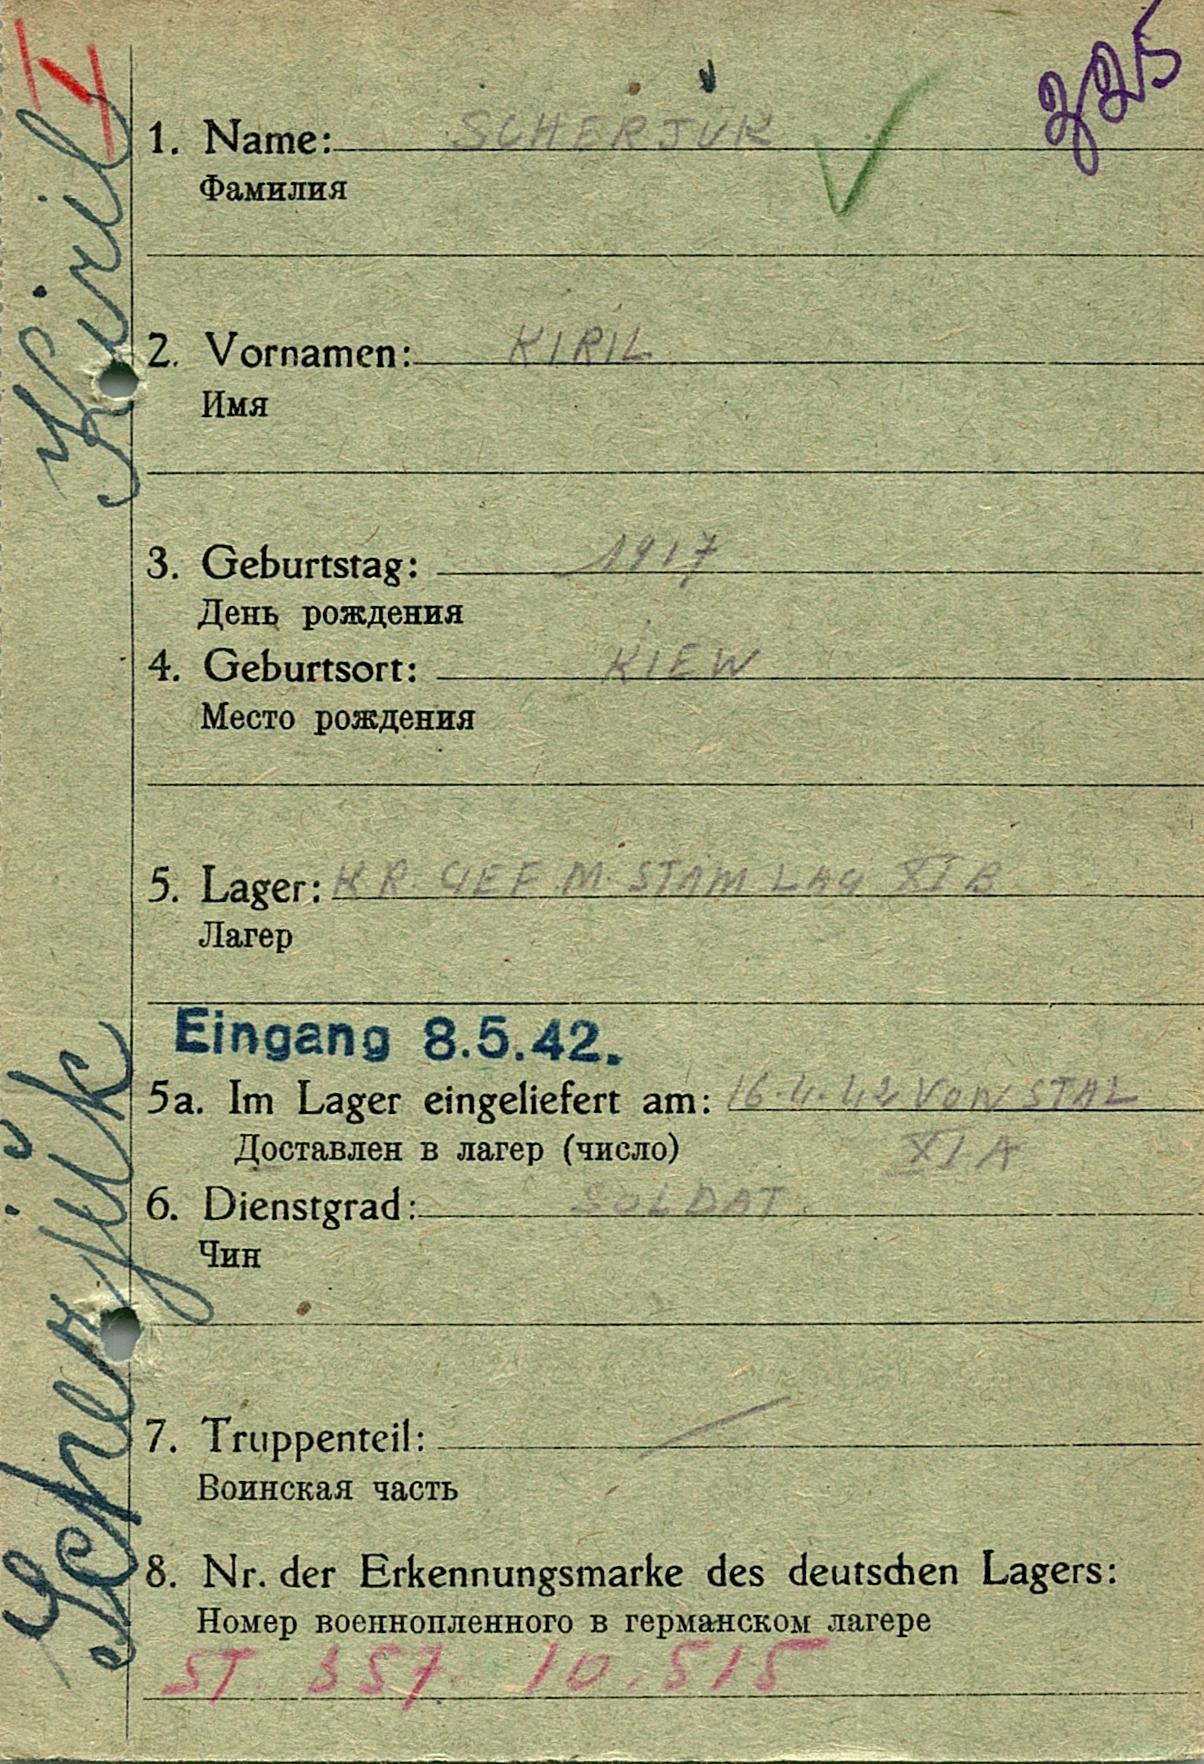 225
1. Name: SCHERJUK
Фамилия
2. Vornamen: KIRIL
Имя
3. Geburtstag: 1917
День рождения
4. Geburtsort: KIEW
Место рождения
5. Lager: KR. GEF. M. STAMLAG XI B
Лагер
Eingang 8.5.42.
5a. Im Lager eingeliefert am: 16.4.42 VON STAL
XI A
Доставлен в лагер (число)
6. Dienstgrad: SOLDAT
Чин
7. Truppenteil:
Воинская часть
8. Nr. der Erkennungsmarke des deutschen Lagers:
Номер военнопленного в германском лагере
ST. 357. 10.515
Scherjuk Kiril